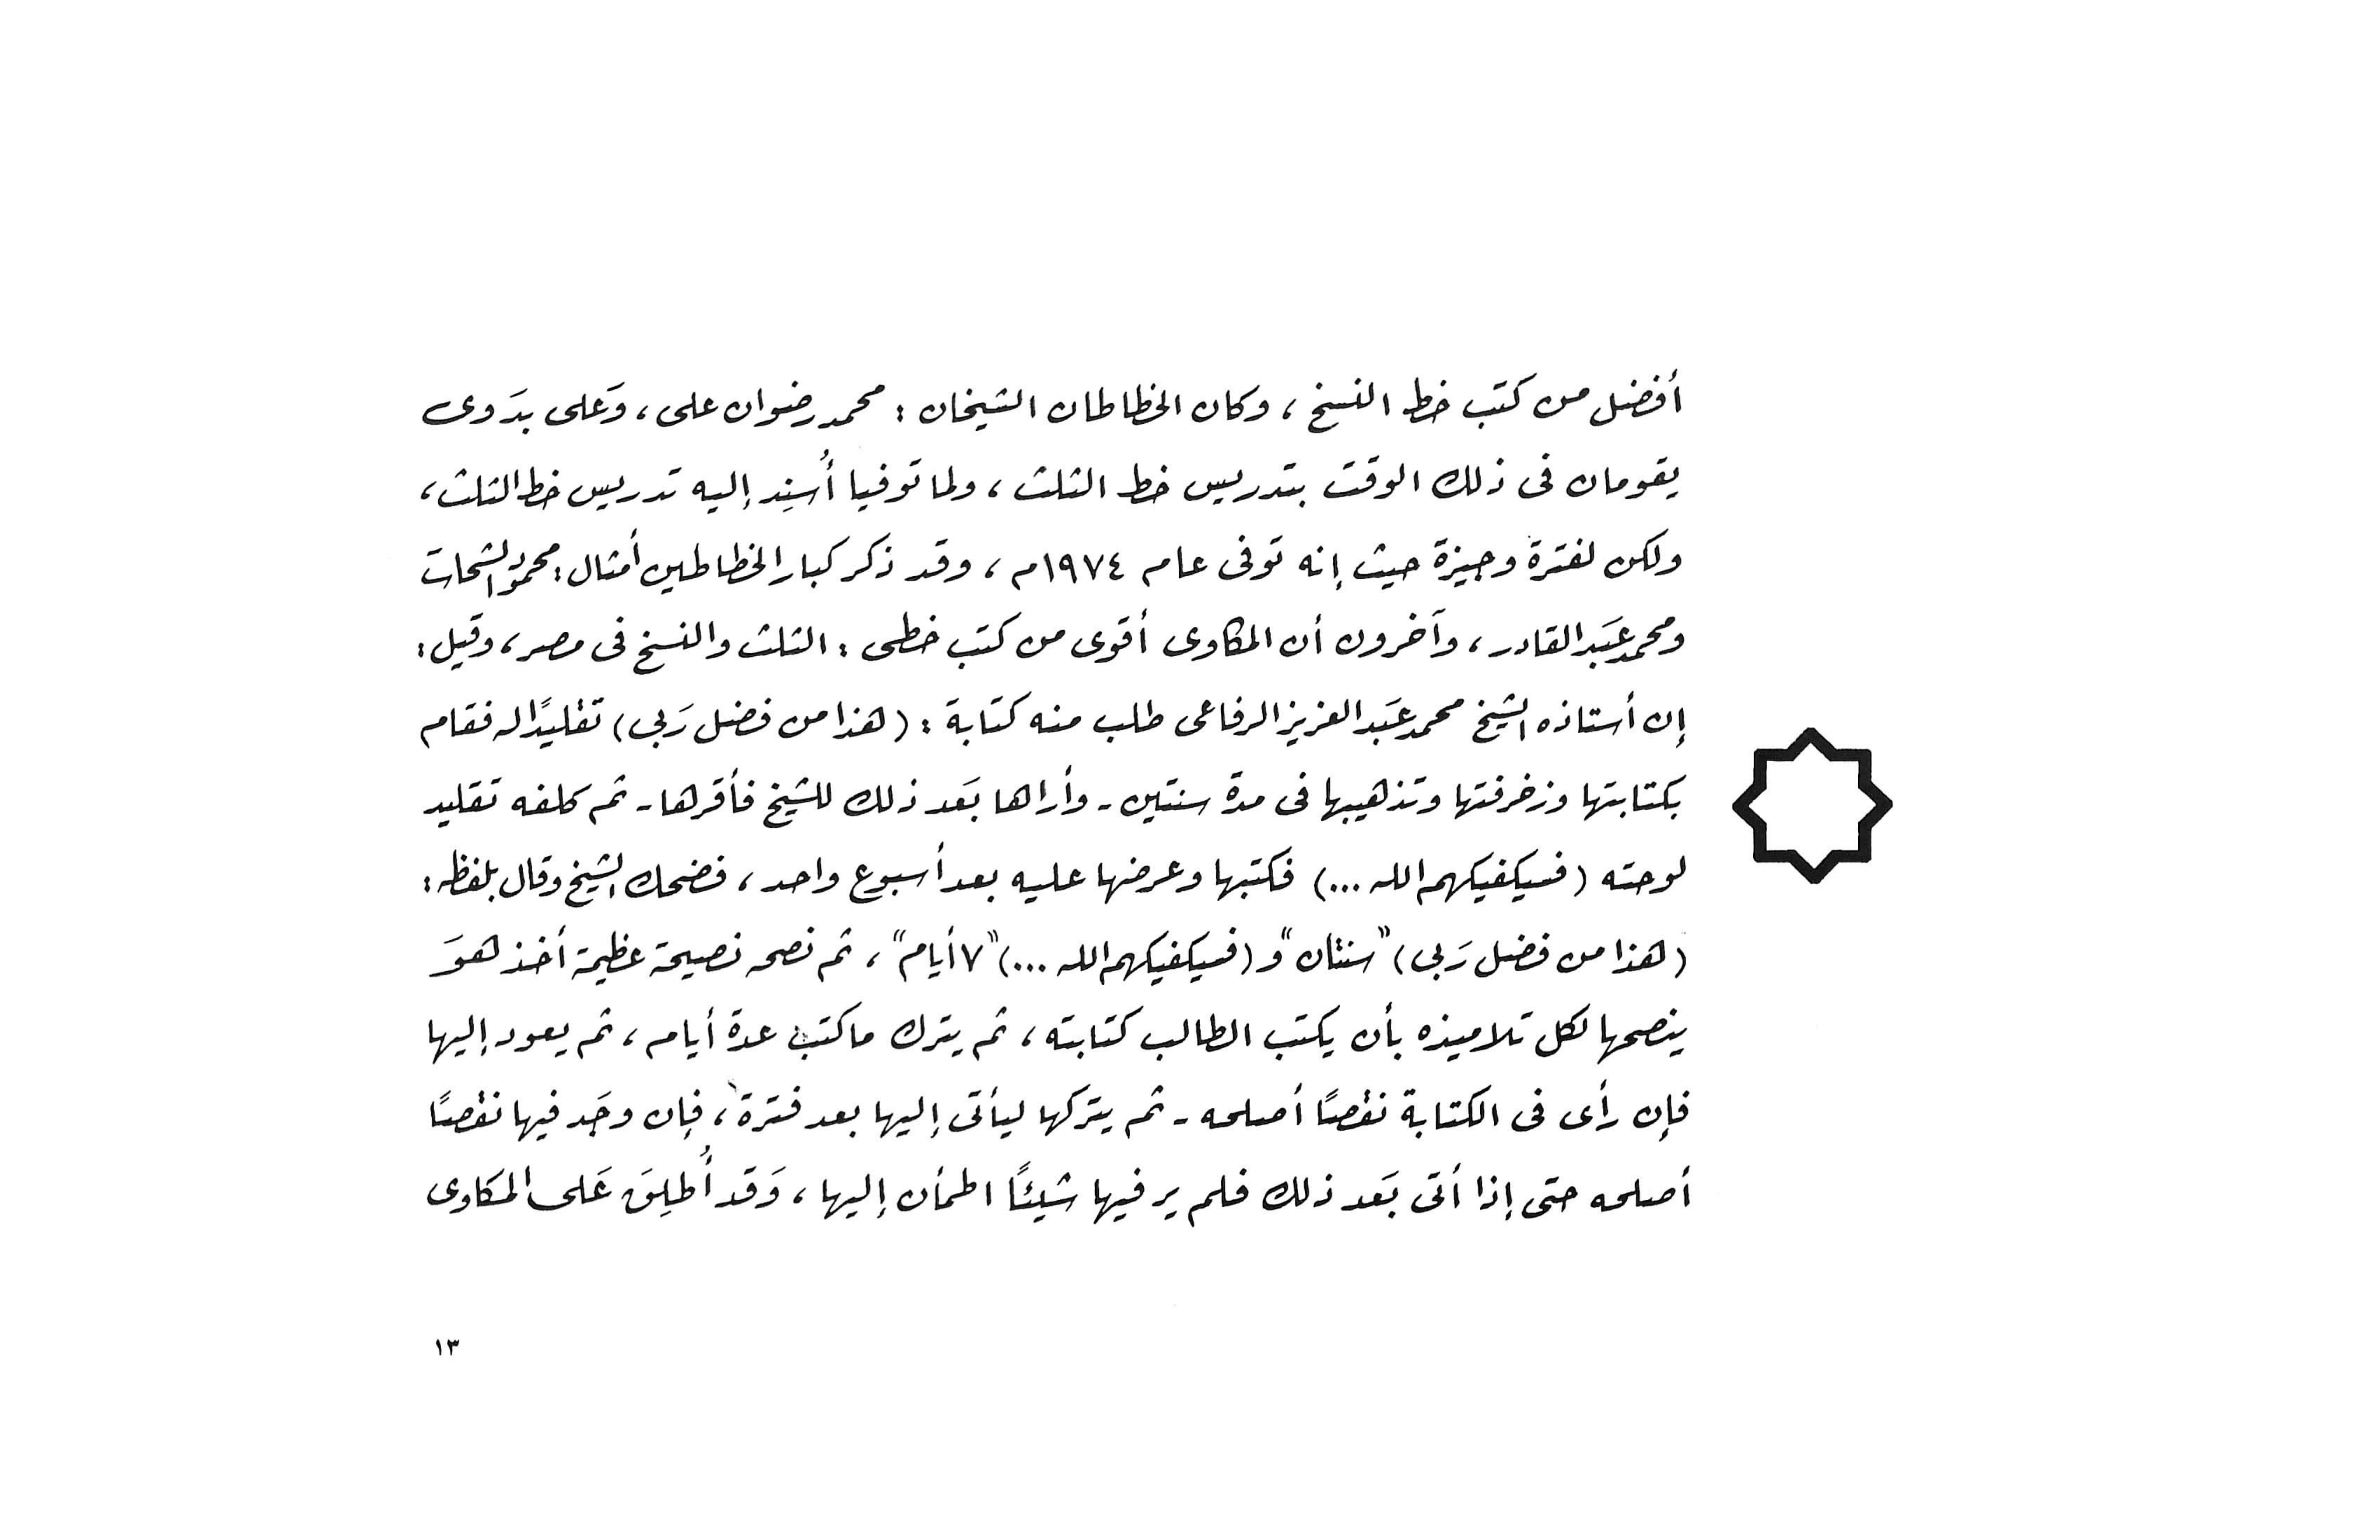 أفضل من كتب خط النسخ ، وكان الخطاطان الشيخان : محمد رضوان على ، وَعلى بدَوى
يقومان فى ذلك الوقت بتدريس خط الثلث ، ولما توفيا أُسنِد إليه تدريس خط الثلث ،
ولكن لفترة وجيزة حيث إنه توفى عام ١٩٧٤م ، وقد ذكر كبار الخطاطين أمثال : محمود الشحات
ومحمد عبَد القادر ، وآخرون أن المكاوى أقوى من كتب خطى : الثلث والنسخ فى مصر ، وقيل :
إن أستاذه الشيخ محمد عبَد العزيز الرفاعى طلب منه كتابة : (هذا من فضل رَبى) تقليدًا له فقام
بكتابتها وزخرفتها وتذهيبها فى مدة سنتين - وأراها بَعد ذلك للشيخ فأقرها - ثم كلفه تقليد
لوحته (فسيكفيكهم الله ...) فكتبها وعرضها عليه بعد أسبوع واحد ، فضحك الشيخ وقال بلفظه :
(هذا من فضل رَبى) "سنتان" و (فسيكفيكهم الله ...) "٧ أيام" ، ثم نصحه نصيحة عظيمة أخذ هوَ
ينصحها لكل تلاميذه بأن يكتب الطالب كتابته ، ثم يترك ما كتب عدة أيام ، ثم يعود إليها
فإن رأى فى الكتابة نقصًا أصلحه - ثم يتركها ليأتى إليها بعد فترة ، فإن وجَد فيها نقصًا
أصلحه حتى إذا أتى بَعد ذلك فلم ير فيها شيئًا اطمأن إليها ، وَقد أُطلِقَ عَلى المكاوى
١٣